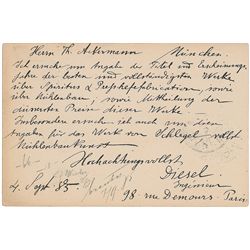 Herrn Th. Ackermann München.
Ich ersuche um Angabe der Titel und Erscheinungs-
jahre der besten und vollständigsten Werke
über Spiritus & Presshefefabrikation, sowie
über Mühlenbau; sowie Mittheilung der
äussersten Preise dieser Werke.
Insbesondere ersuche ich auch um diese
Angaben für das Werk von Schlegel vollst.
Mühlenbaukunst
Hochachtungsvollst
Diesel
Ingenieur
4 Sept 85
98 rue Demours. Paris